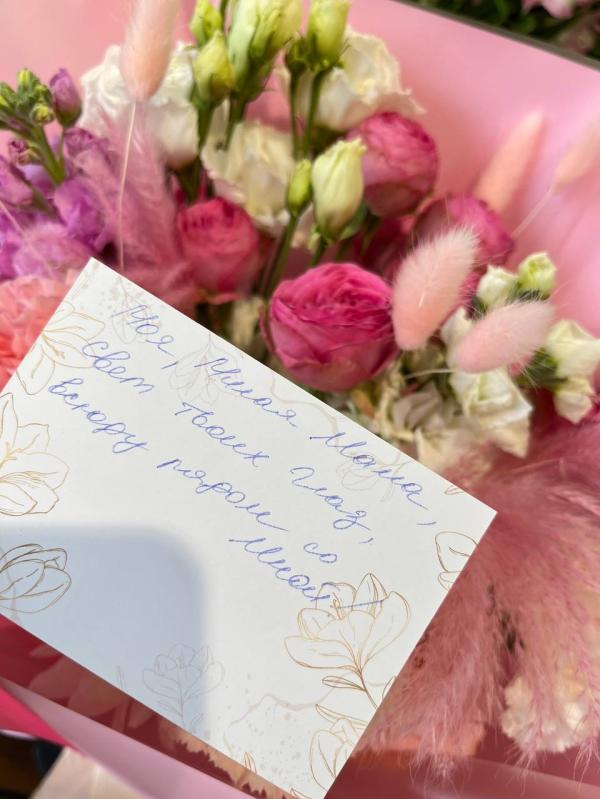 Моя, милая мама,
свет твоих глаз,
всюду рядом со
мной!